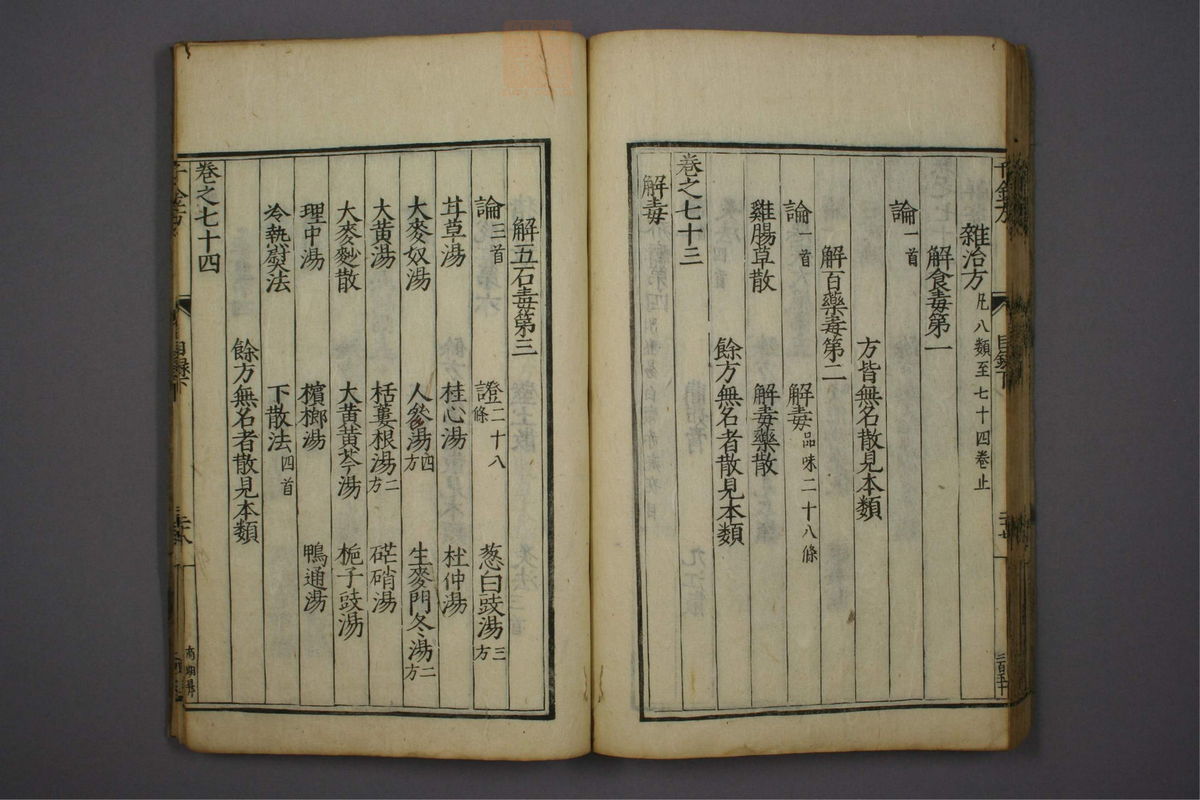 雜治方 凡八類至七十四卷止
解食毒第一
論一首
方皆無名散見本類
解百藥毒第二
論一首 解毒品味二十八條
雞腸草散 解毒藥散
餘方無名者散見本類
卷之七十三
解毒
解五石毒第三
論三首 證二十八條 葱白豉湯三方
甘草湯 桂心湯 杜仲湯
大麥奴湯 人參湯四方 生麥門冬湯二方
大黃湯 栝蔞根湯二方 硭硝湯
大麥麨散 大黃黃芩湯 梔子豉湯
理中湯 檳榔湯 鴨通湯
冷熱熨法 下散法四首
餘方無名者散見本類
卷之七十四
千金方
目錄下